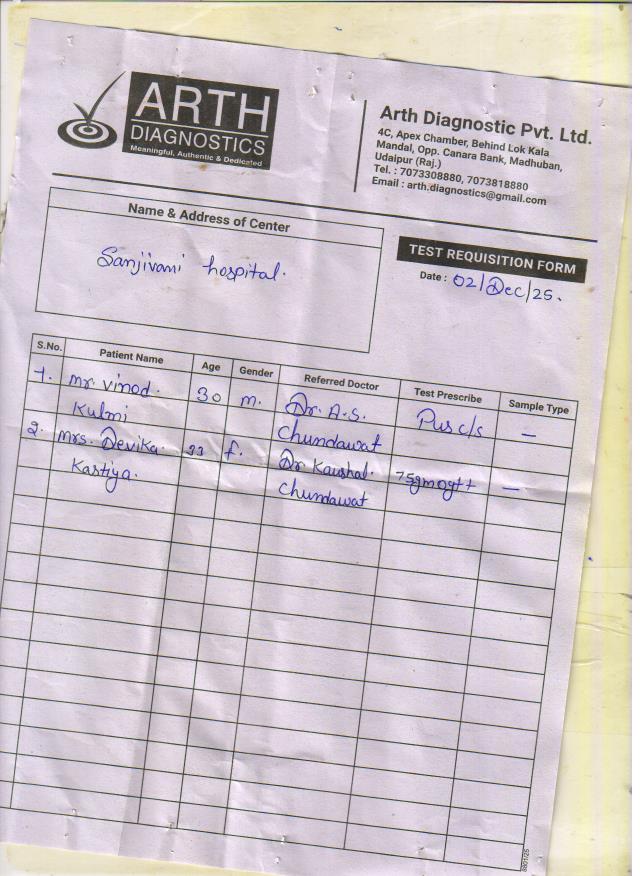 ARTH
DIAGNOSTICS
Meaningful, Authentic & Dedicated
Arth Diagnostic Pvt. Ltd.
4C, Apex Chamber, Behind Lok Kala
Mandal, Opp. Canara Bank, Madhuban,
Udaipur (Raj.)
Tel. : 7073308880, 7073818880
Email : arth.diagnostics@gmail.com
Name & Address of Center
Sanjivani hospital.
TEST REQUISITION FORM
Date : 02/Dec/25.
S.No. Patient Name Age Gender Referred Doctor Test Prescribe Sample Type
1. mr. Vinod. 30 m. Dr. A.S. Pus c/s —
Kulmi Chundawat
2. mrs. Devika. 33 f. Dr Kaushal. 75gmogtt —
Kastiya. Chundawat